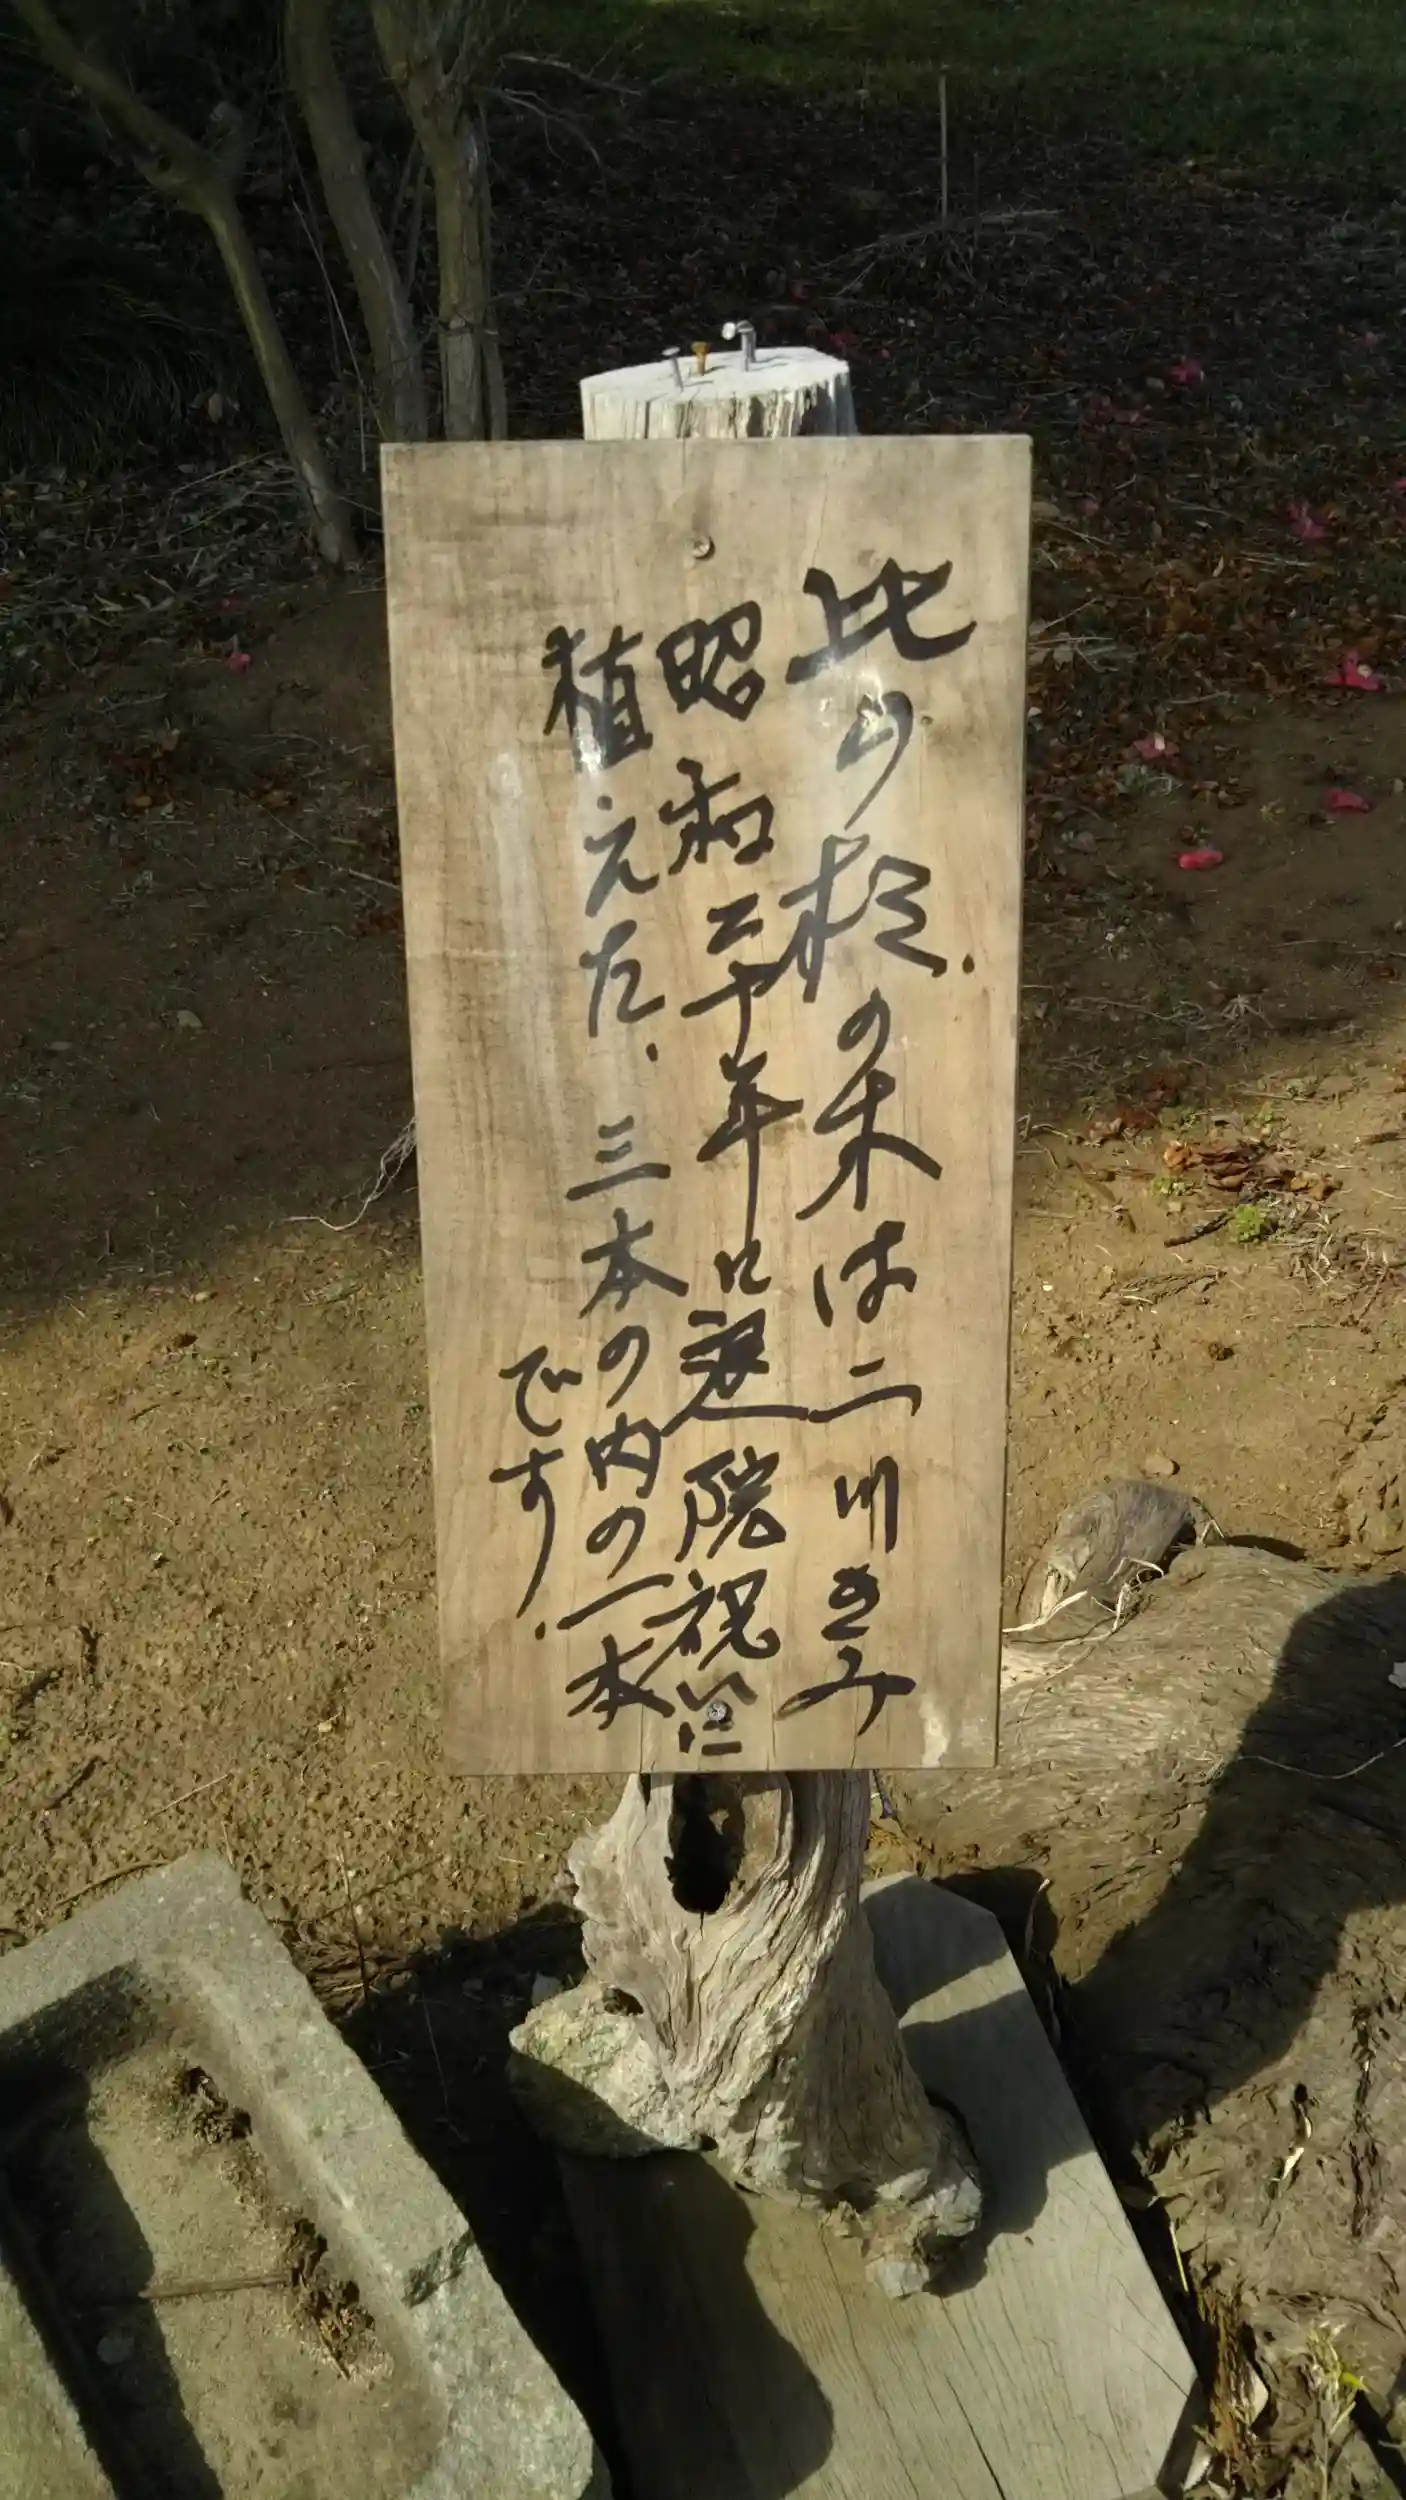 此の松の木は二川きみ
昭和二十年に退院祝いに
植えた.三本の内の一本
です.